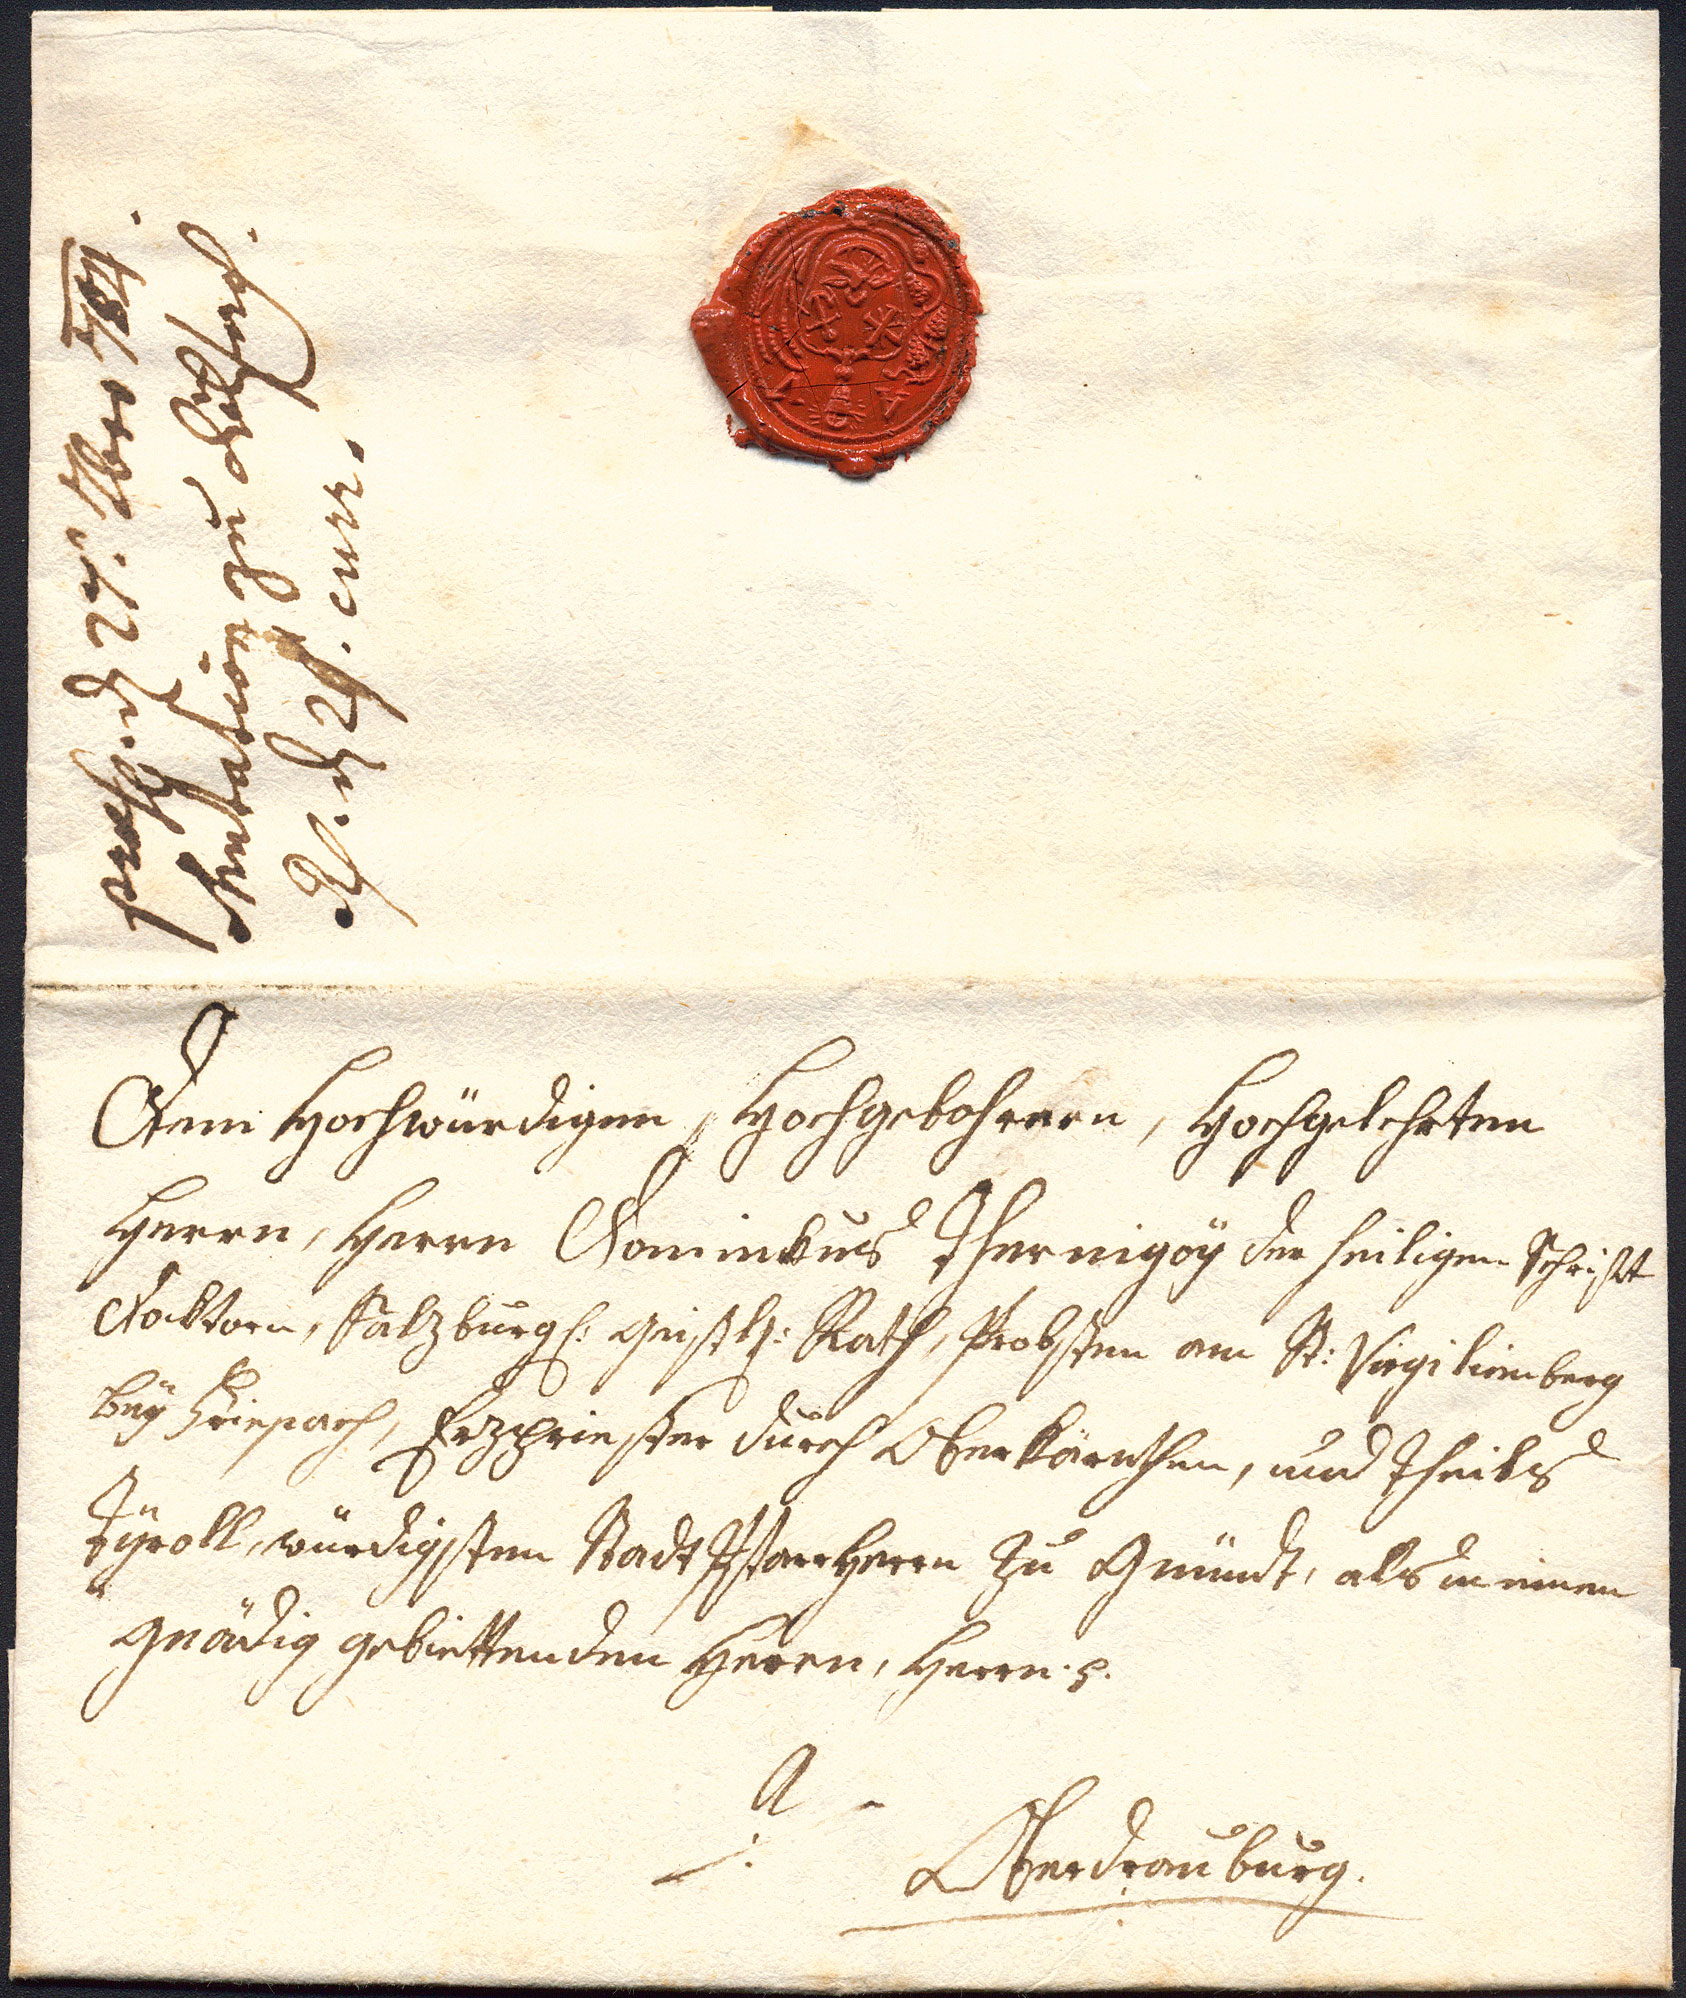 praes. d. 27. 7bro 1784.
Mutation zu Döllach
d. 29. curr.
Dem Hochwürdigen, Hochgebohrnen, Hochgelehrten
Herrn, Herrn Dominikus Thernigoÿ der heiligen Schrift
Doktorn, Salzburgl: Geistl: Rath, Probsten am St: Virgilienberg
beÿ Friesach, Erzpriester durch Oberkärnthen, und theils
Tÿroll, würdigsten Stadt Pfarrherrn zu Gmündt, als meinen
Gnädig gebiettenden Herrn, Herrn.
A
Oberdrauburg.